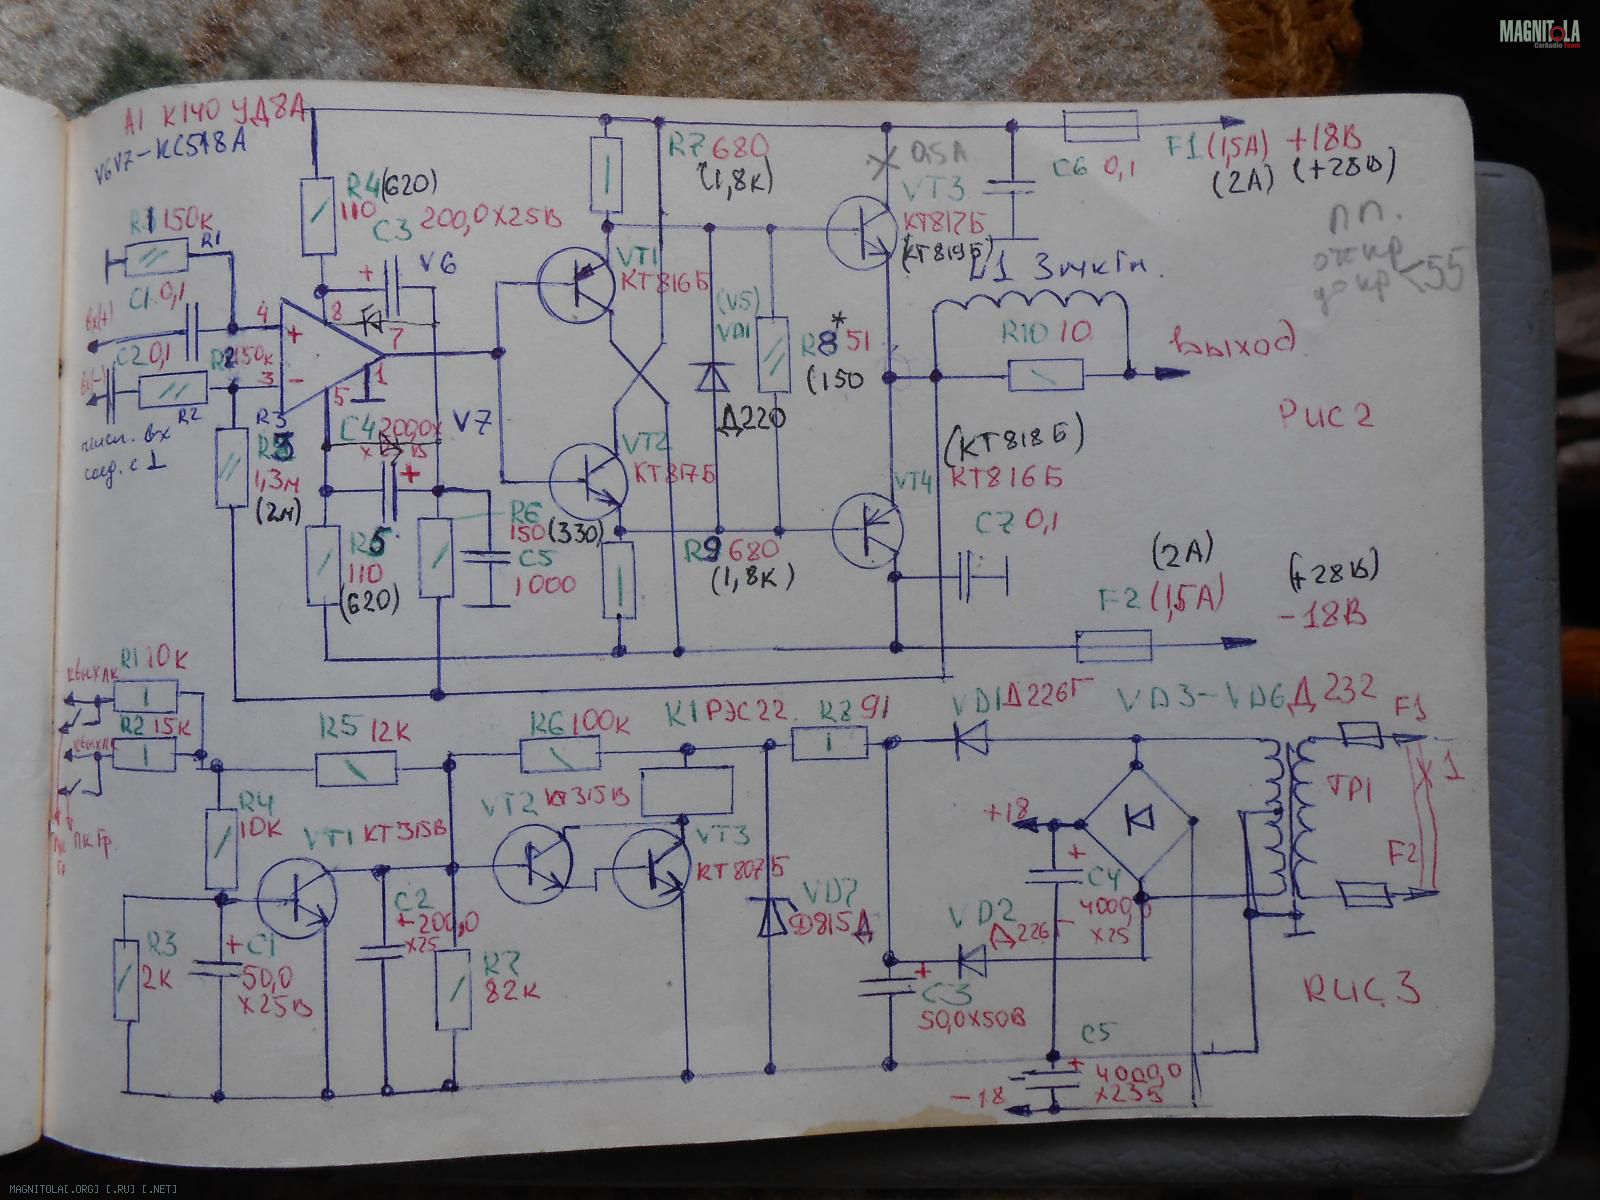 MAGNITOLA
CarAudio Team
A1 К140 УД8А
V6V7-КС518А
R1 150к
R1
C1 0,1
вх(+)
C2 0,1
R2 150к
вх(-)
R2
соед. с 1
R3
1,3м
(2м)
R4 (620)
110
C3 200,0х25В
V6
4
8
7
+
3
-
5
1
C4 200,0х
х25В
V7
R5
110
(620)
R6
150 (330)
C5
1000
R7 680
(1,8к)
VT1
КТ816Б
VT2
КТ817Б
(V5)
VD1
Д220
*
R8 51
(150
R9 680
(1,8к)
0,5А
VT3
КТ817Б
(КТ819Б)
C6 0,1
F1 (1,5А) +18В
(2А) (+28В)
пп.
откр
до кр <55
L1 3мкГн.
R10 10
Выход
Рис 2
(КТ818Б)
VT4 КТ816Б
C7 0,1
(2А)
F2 (1,5А)
(+28В)
-18В
R1 10к
R2 15к
R5 12к
R6 100к
К1 РЭС22
R8 91
VD1 Д226Г
VD3-VD6 Д232
F1
ТР1
Х1
F2
R4
10к
VT1 КТ315В
VT2 КТ315В
VT3
КТ807Б
R3
2К
+ C1
50,0
х25В
C2
+200,0
х25
R7
82к
VD7
Д815Д
VD2
Д226Г
+18
+
C4
4000,0
х25
+
C3
50,0х50В
C5
+
4000,0
х25В
-18
Рис.3
MAGNITOLA[.ORG] [.RU] [.NET]